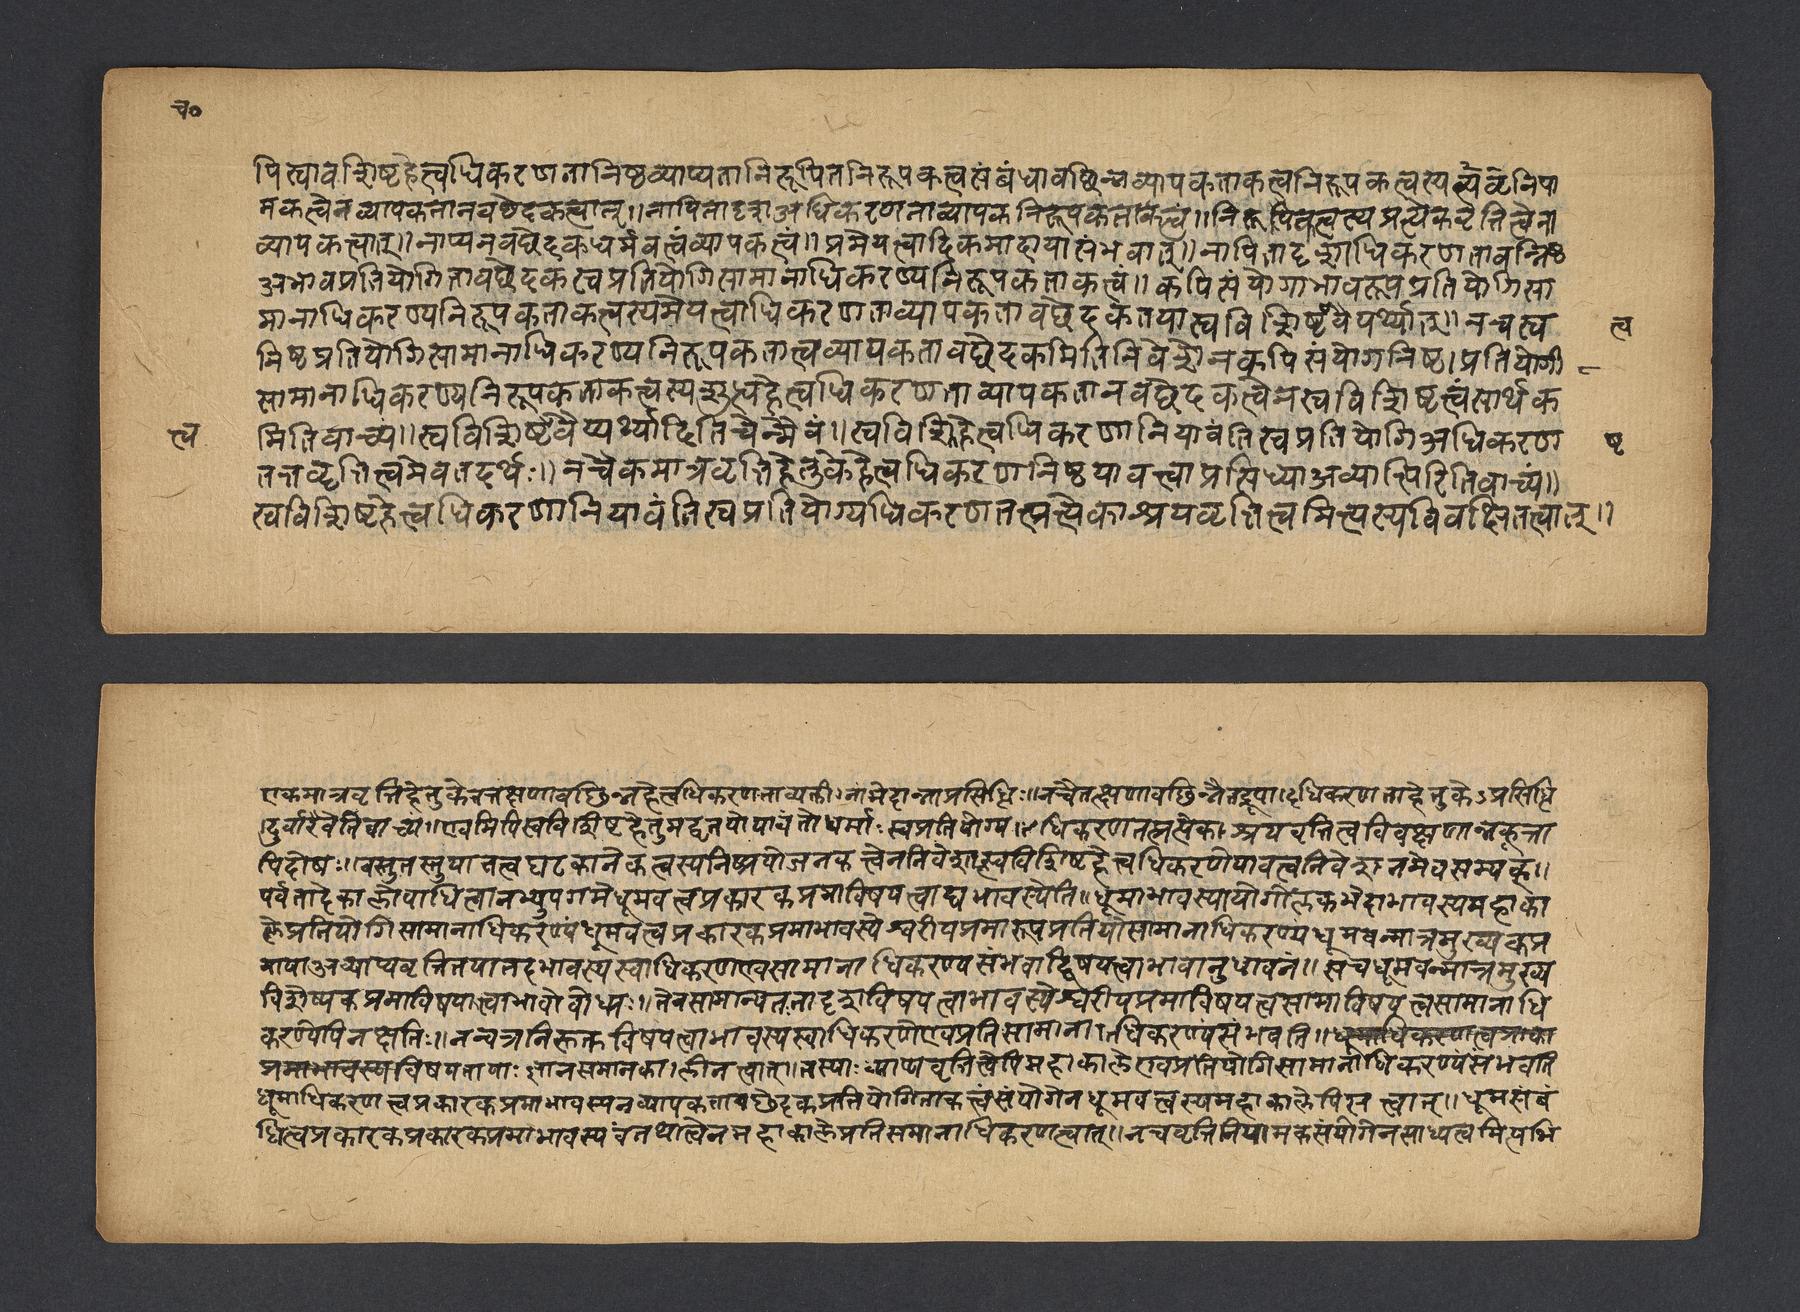 च०
पि स्वावशिष्टहेत्वधिकरणतानिष्ठव्याप्यतानिरूपितनिरूपकत्वसंबंधावछिन्नव्यापकताकत्वनिरूपकत्वस्य
मकत्वेन व्यापकतानवछेदकत्वात्।। नापि तादृशअधिकरणताव्यापकनिरूपकताकत्वं।। निरूपितत्वस्य प्रत्येकवृत्तित्वेना
व्यापकत्वात्।। नाप्यनवछेदकधर्मवत्त्वं व्यापकत्वं।। प्रमेयत्वादिकमादायासंभवात्।। नापि तादृशाधिकरणतावन्निष्ठ
अभावप्रतियोगितावछेदकस्वप्रतियोगिसामानाधिकरण्यनिरूपकताकत्वं।। कपिसंयोगाभावरूपप्रतियोगिसा
मानाधिकरण्यनिरूपकताकत्वस्यमेयत्वाधिकरणताव्यापकतावछेदकतया स्वविशिष्टवैयर्थ्यात्।। न च स्व
त्व
निष्ठप्रतियोगिसामानाधिकरण्यनिरूपकतात्वव्यापकतावछेदकमिति निवेशेन कपिसंयोगनिष्ठ। प्रतियोगी
सामानाधिकरण्यनिरूपकताकत्वस्य हेत्वधिकरणताव्यापकतानवछेदकत्वेन स्वविशिष्टत्वं सार्थक
त्व
मिति वाच्यं।। स्वविशिष्टवैय्यर्थ्यादिति चेन्मैवं।। स्वविशिहेत्वधिकरणानि यावंति स्वप्रतियोगिअधिकरण
ष्ट
तत्तद्वृत्तित्वमेव तदर्थः।। न चैकमात्रवृत्तिहेतुके हेत्वधिकरणनिष्ठयावत्त्वाप्रसिध्या अव्याप्तिरिति वाच्यं।।
स्वविशिष्टहेत्वधिकरणानि यावंति स्वप्रतियोग्यधिकरणतत्प्रत्येकाश्रयवृत्तित्वमित्यस्य विवक्षितत्वात्।।
एकमात्रवृत्तिहेतुके तत्तक्षणावछिन्नहेत्वधिकरणताव्यक्ती। नां भेदान्नाप्रसिध्दिः।। न चैतत्क्षणावछिन्नैतद्रूपा। दधिकरणताहेतुके ऽप्रसिध्दि
र्दुर्वारैवेति वाच्यं।। एवमपि स्वविशिष्टहेतुमद्वृतयो यावंतो धर्माः स्वप्रतियोग्य।धिकरणतत्प्रत्येकाश्रयवृत्तित्वविवक्षणान्न कुत्रा
पि दोषः।। वस्तुतस्तु यावत्त्वघटकानेकत्वस्य निष्प्रयोजनकत्वेन निवेशात्स्वविशिष्टहेत्वधिकरणे यावत्वनिवेशनमेव सम्यक्।।
पर्वतादेः कालोपाधित्वानभ्युपगमे धूमवत्त्वप्रकारकप्रमाविषयत्वाद्यभावस्येति।। धूमाभावस्यायोगोलकभेदाभावस्य महाका
ले प्रतियोगिसामानाधिकरण्यं धूमवत्त्वप्रकारकप्रमाभावस्येश्वरीयप्रमारूपप्रतियोसामानाधिकरण्य धूमवन्मात्रमुख्यकप्र
माया अव्याप्यवृत्तितया तदभावस्य स्वाधिकरण एव सामानाधिकरण्यसंभवाद्विषयत्वाभावानुधावनं।। स च धूमवन्मात्रमुख्य
विशेष्यकप्रमाविषयात्वाभावो बोध्यः।। तेन सामान्यतः तादृशविषयत्वाभावस्येश्वरीयप्रमाविषयत्वसामाविषयत्वसामानाधि
करण्येपि न क्षतिः।। नन्वत्र निरूक्तविषयत्वाभावस्य स्वाधिकरणे एव प्रतिसामाना। धिकरण्यं संभवति।।
विषयतायाः ज्ञानसमानका। लीनत्वात्। तस्याः व्याप्यवृत्तित्वेपि महाकाले एव प्रतियोगिसामानाधिकरण्यं संभवति
धूमाधिकरणत्वप्रकारकप्रमाभावस्य न व्यापकतावछेदकप्रतियोगिताकत्वं संयोगेन धूमवत्त्वस्य महाकालेपि सत्त्वात्।। धूमसंबं
धित्वप्रकारकप्रकारकप्रमाभावस्य तथात्वेन महाकाले प्रतिसमानाधिकरणत्वात्।। न च वृत्तिनियामकसंयोगेन साध्यत्वमित्यभि